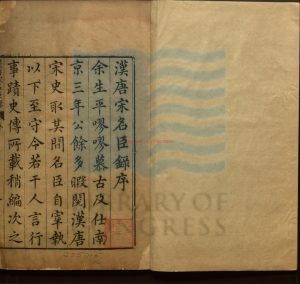 漢唐宋名臣錄序
余生平嘐嘐慕古及仕南
京三年公餘多暇閱漢唐
宋史取其間名臣自宰執
以下至守令若干人言行
事蹟史傳所載稍編次之
LIBRARY OF
CONGRESS